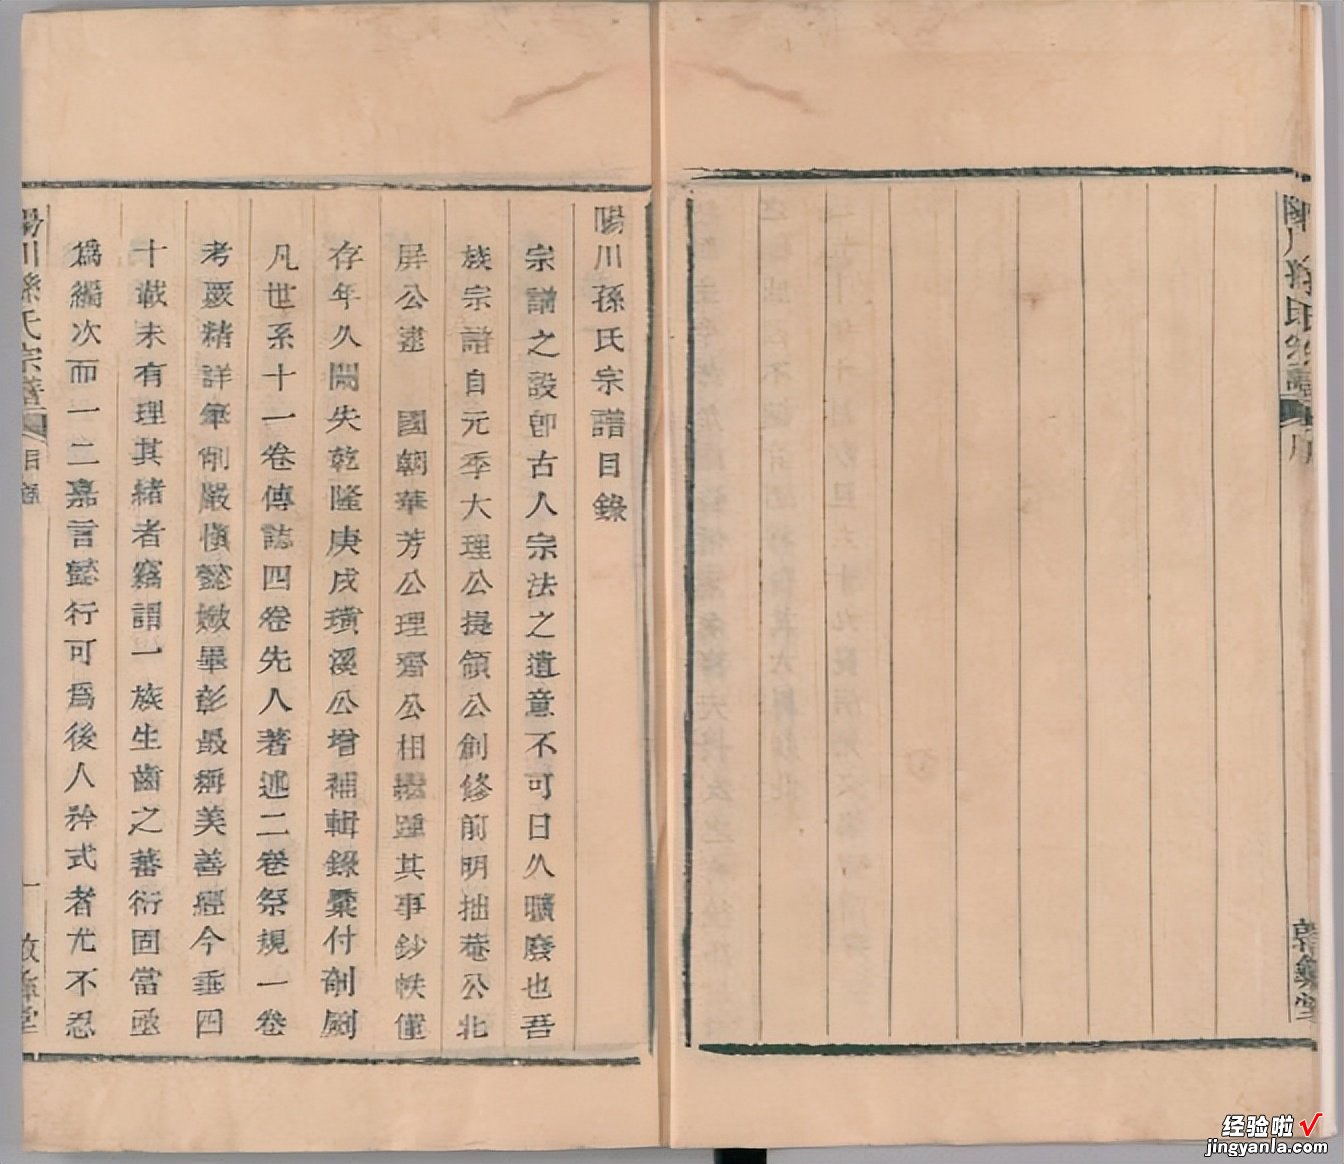 陽川孫氏宗譜
序
陽川孫氏宗譜目錄
宗譜之設卽古人宗法之遺意不可日久曠廢也吾
族宗譜自元季大理公提領公創修前明拙菴公北
屏公逮 國朝華芳公理齋公相繼踵其事鈔帙僅
存年久闕失乾隆庚戌璜溪公增補輯錄彙付剞劂
凡世系十一卷傳誌四卷先人著述二卷祭規一卷
考覈精詳筆削嚴愼懿媺畢彰最稱美善經今垂四
十載未有理其緒者竊謂一族生齒之蕃衍固當亟
爲編次而一二嘉言懿行可爲後人矜式者尤不忍
陽川孫氏宗譜
目錄
一
敘彝堂
经验啦√
jingyanla.com